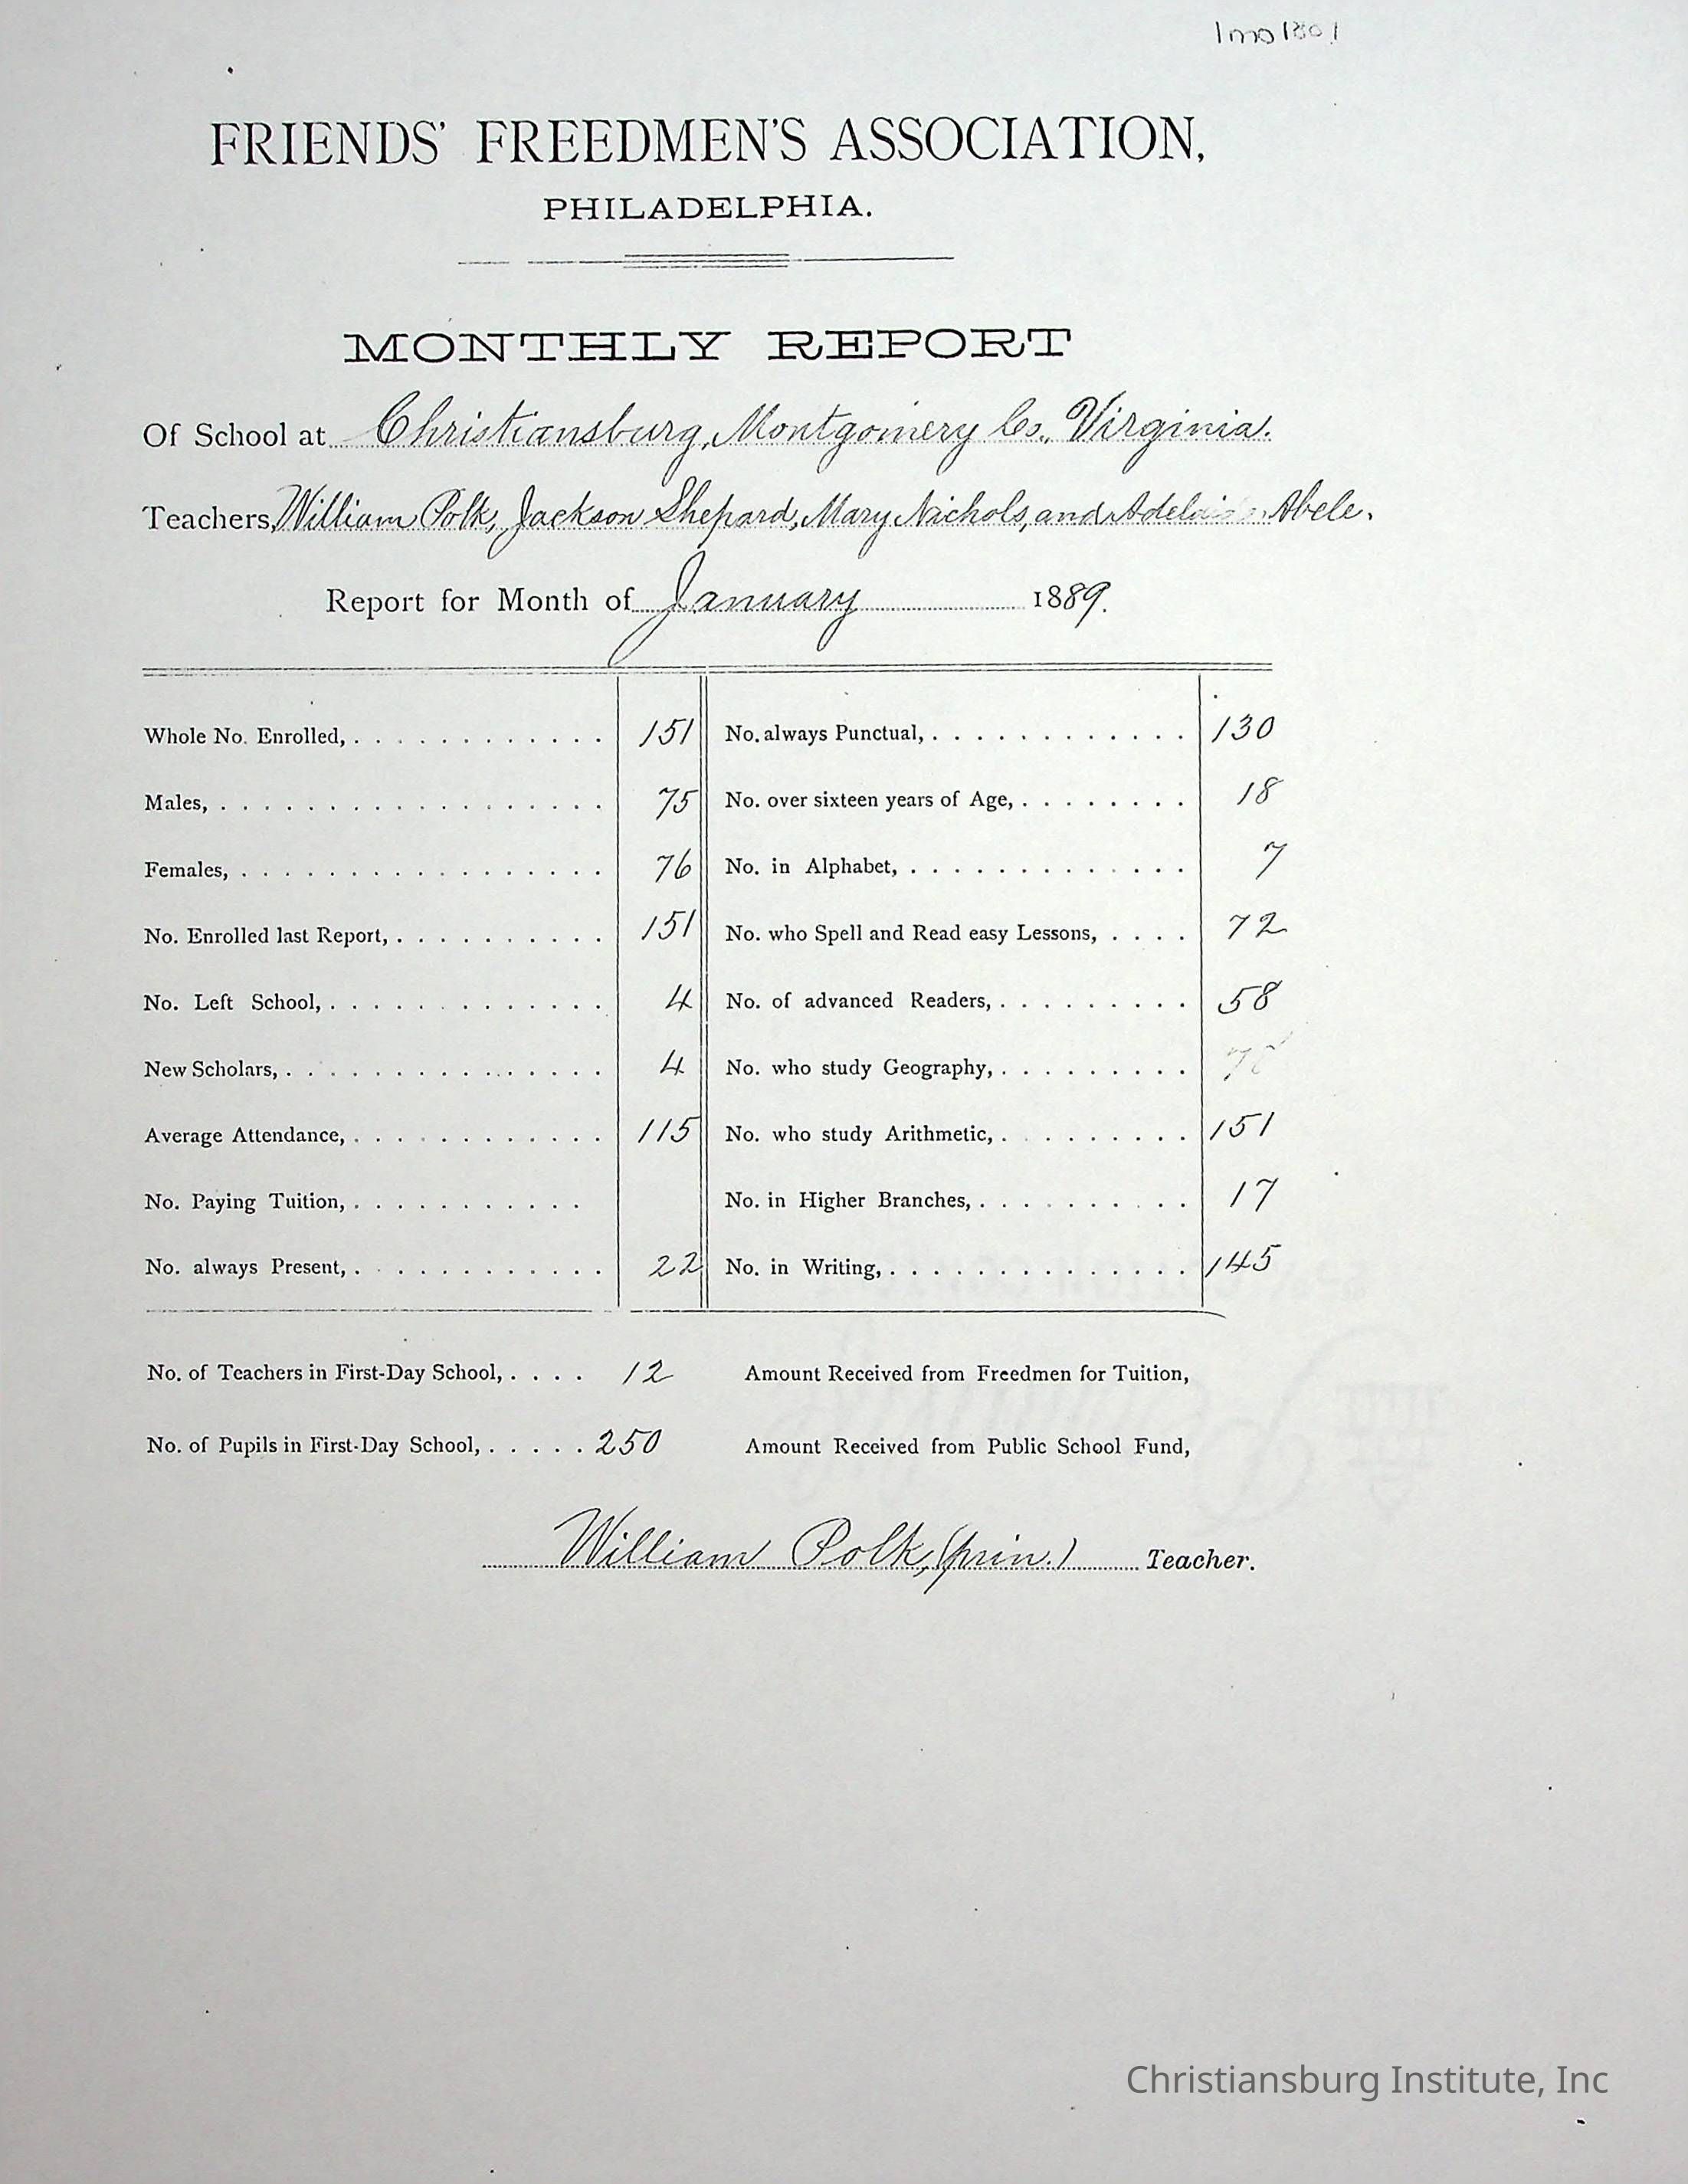 FRIENDS' FREEDMEN'S ASSOCIATION,
PHILADELPHIA.
MONTHLY REPORT
Of School at Christiansburg, Montgomery Co., Virginia.
Teachers, William Polk, Jackson Shepard, Mary Nichols, and Abele.
Report for Month of January 1889.
Whole No. Enrolled, 151
Males, 75
Females, 76
No. Enrolled last Report, 151
No. Left School, 4
New Scholars, 4
Average Attendance, 115
No. Paying Tuition,
No. always Present, 22
No. always Punctual, 130
No. over sixteen years of Age, 18
No. in Alphabet, 7
No. who Spell and Read easy Lessons, 72
No. of advanced Readers, 58
No. who study Geography,
No. who study Arithmetic, 151
No. in Higher Branches, 17
No. in Writing, 145
No. of Teachers in First-Day School, 12
No. of Pupils in First-Day School, 250
Amount Received from Freedmen for Tuition,
Amount Received from Public School Fund,
William Polk, (prin.) Teacher.
Christiansburg Institute, Inc